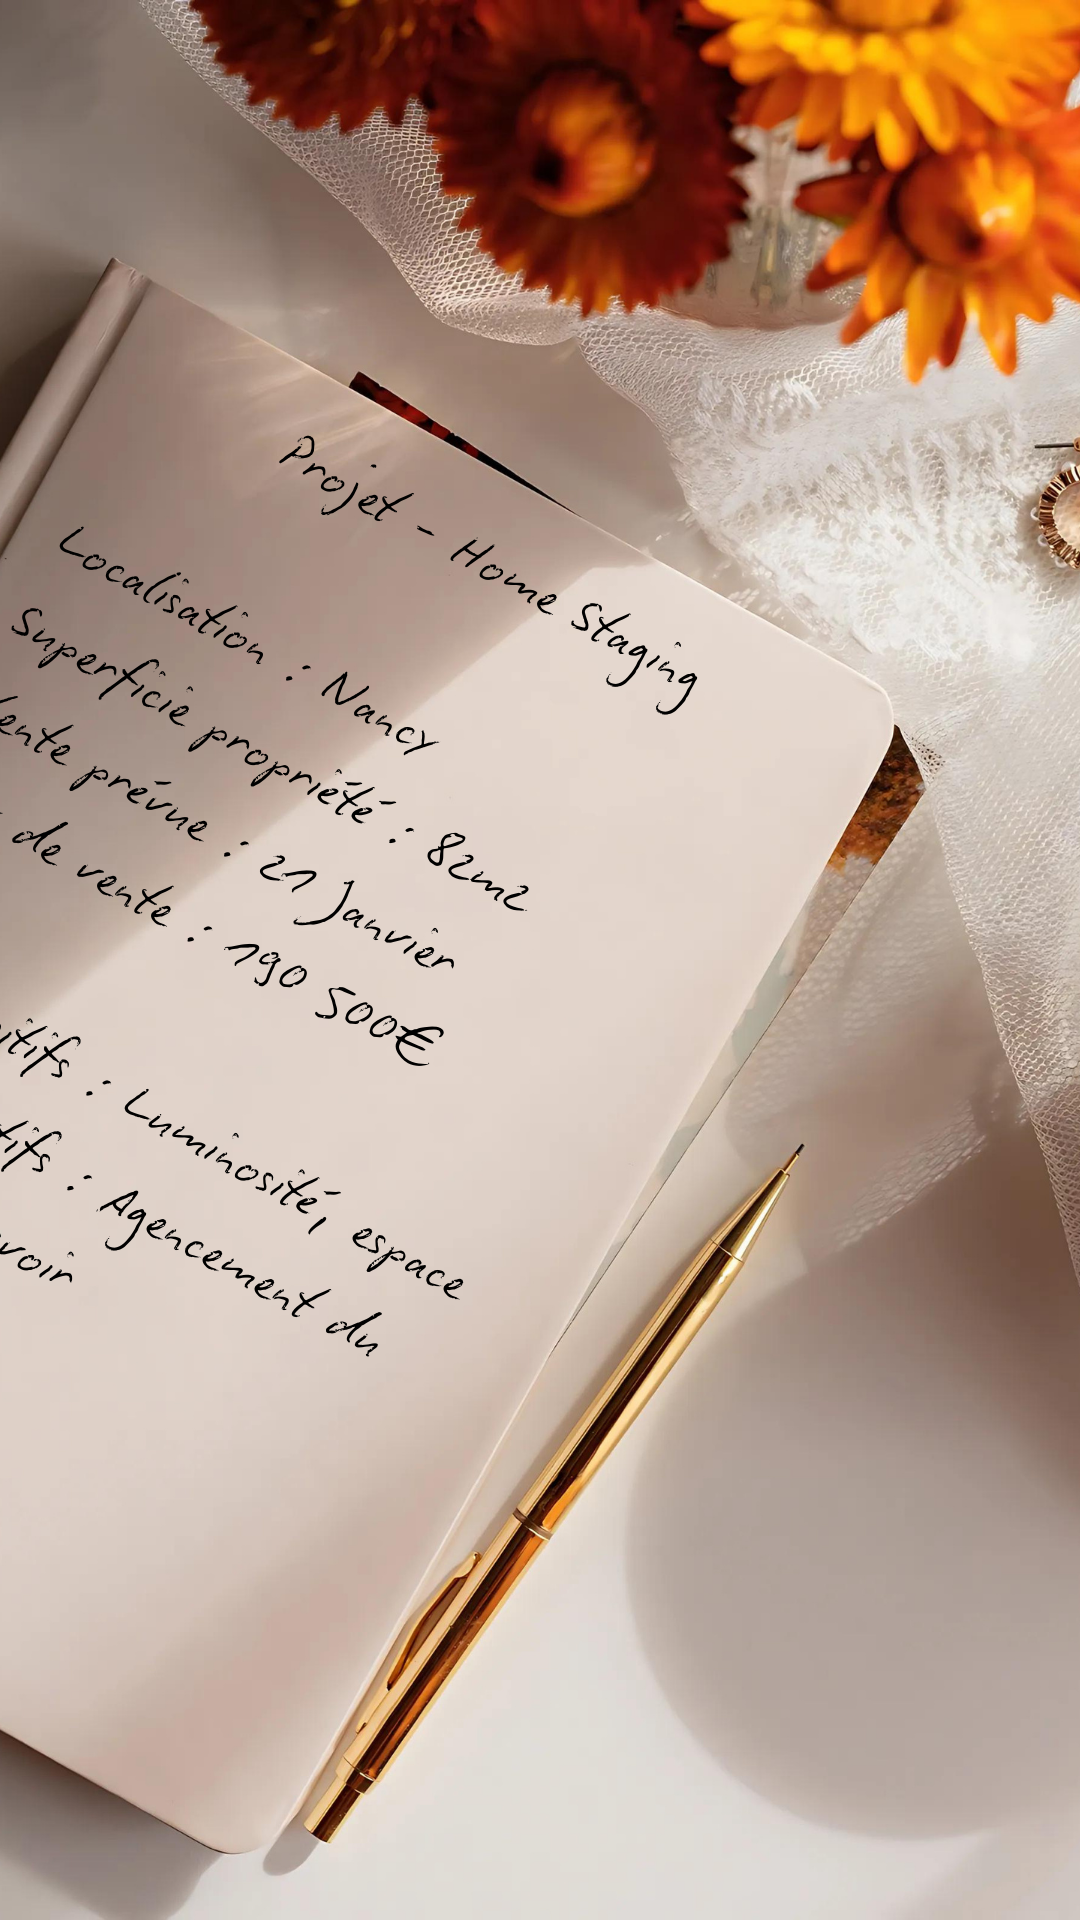 Projet - Home Staging
Localisation : Nancy
Superficie propriété : 82m2
prévue : 21 Janvier
de vente : 190 500€
: Luminosité, espace
: Agencement du